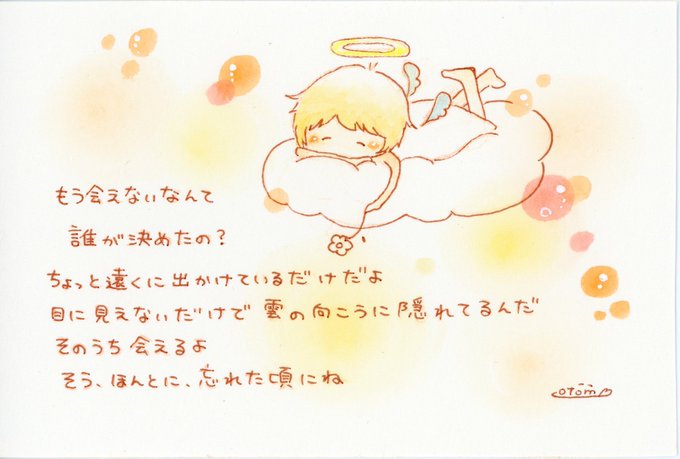 もう会えないなんて
誰が決めたの？
ちょっと遠くに出かけているだけだよ
目に見えないだけで 雲の向こうに隠れてるんだ
そのうち会えるよ
そう、ほんとに、忘れた頃にね